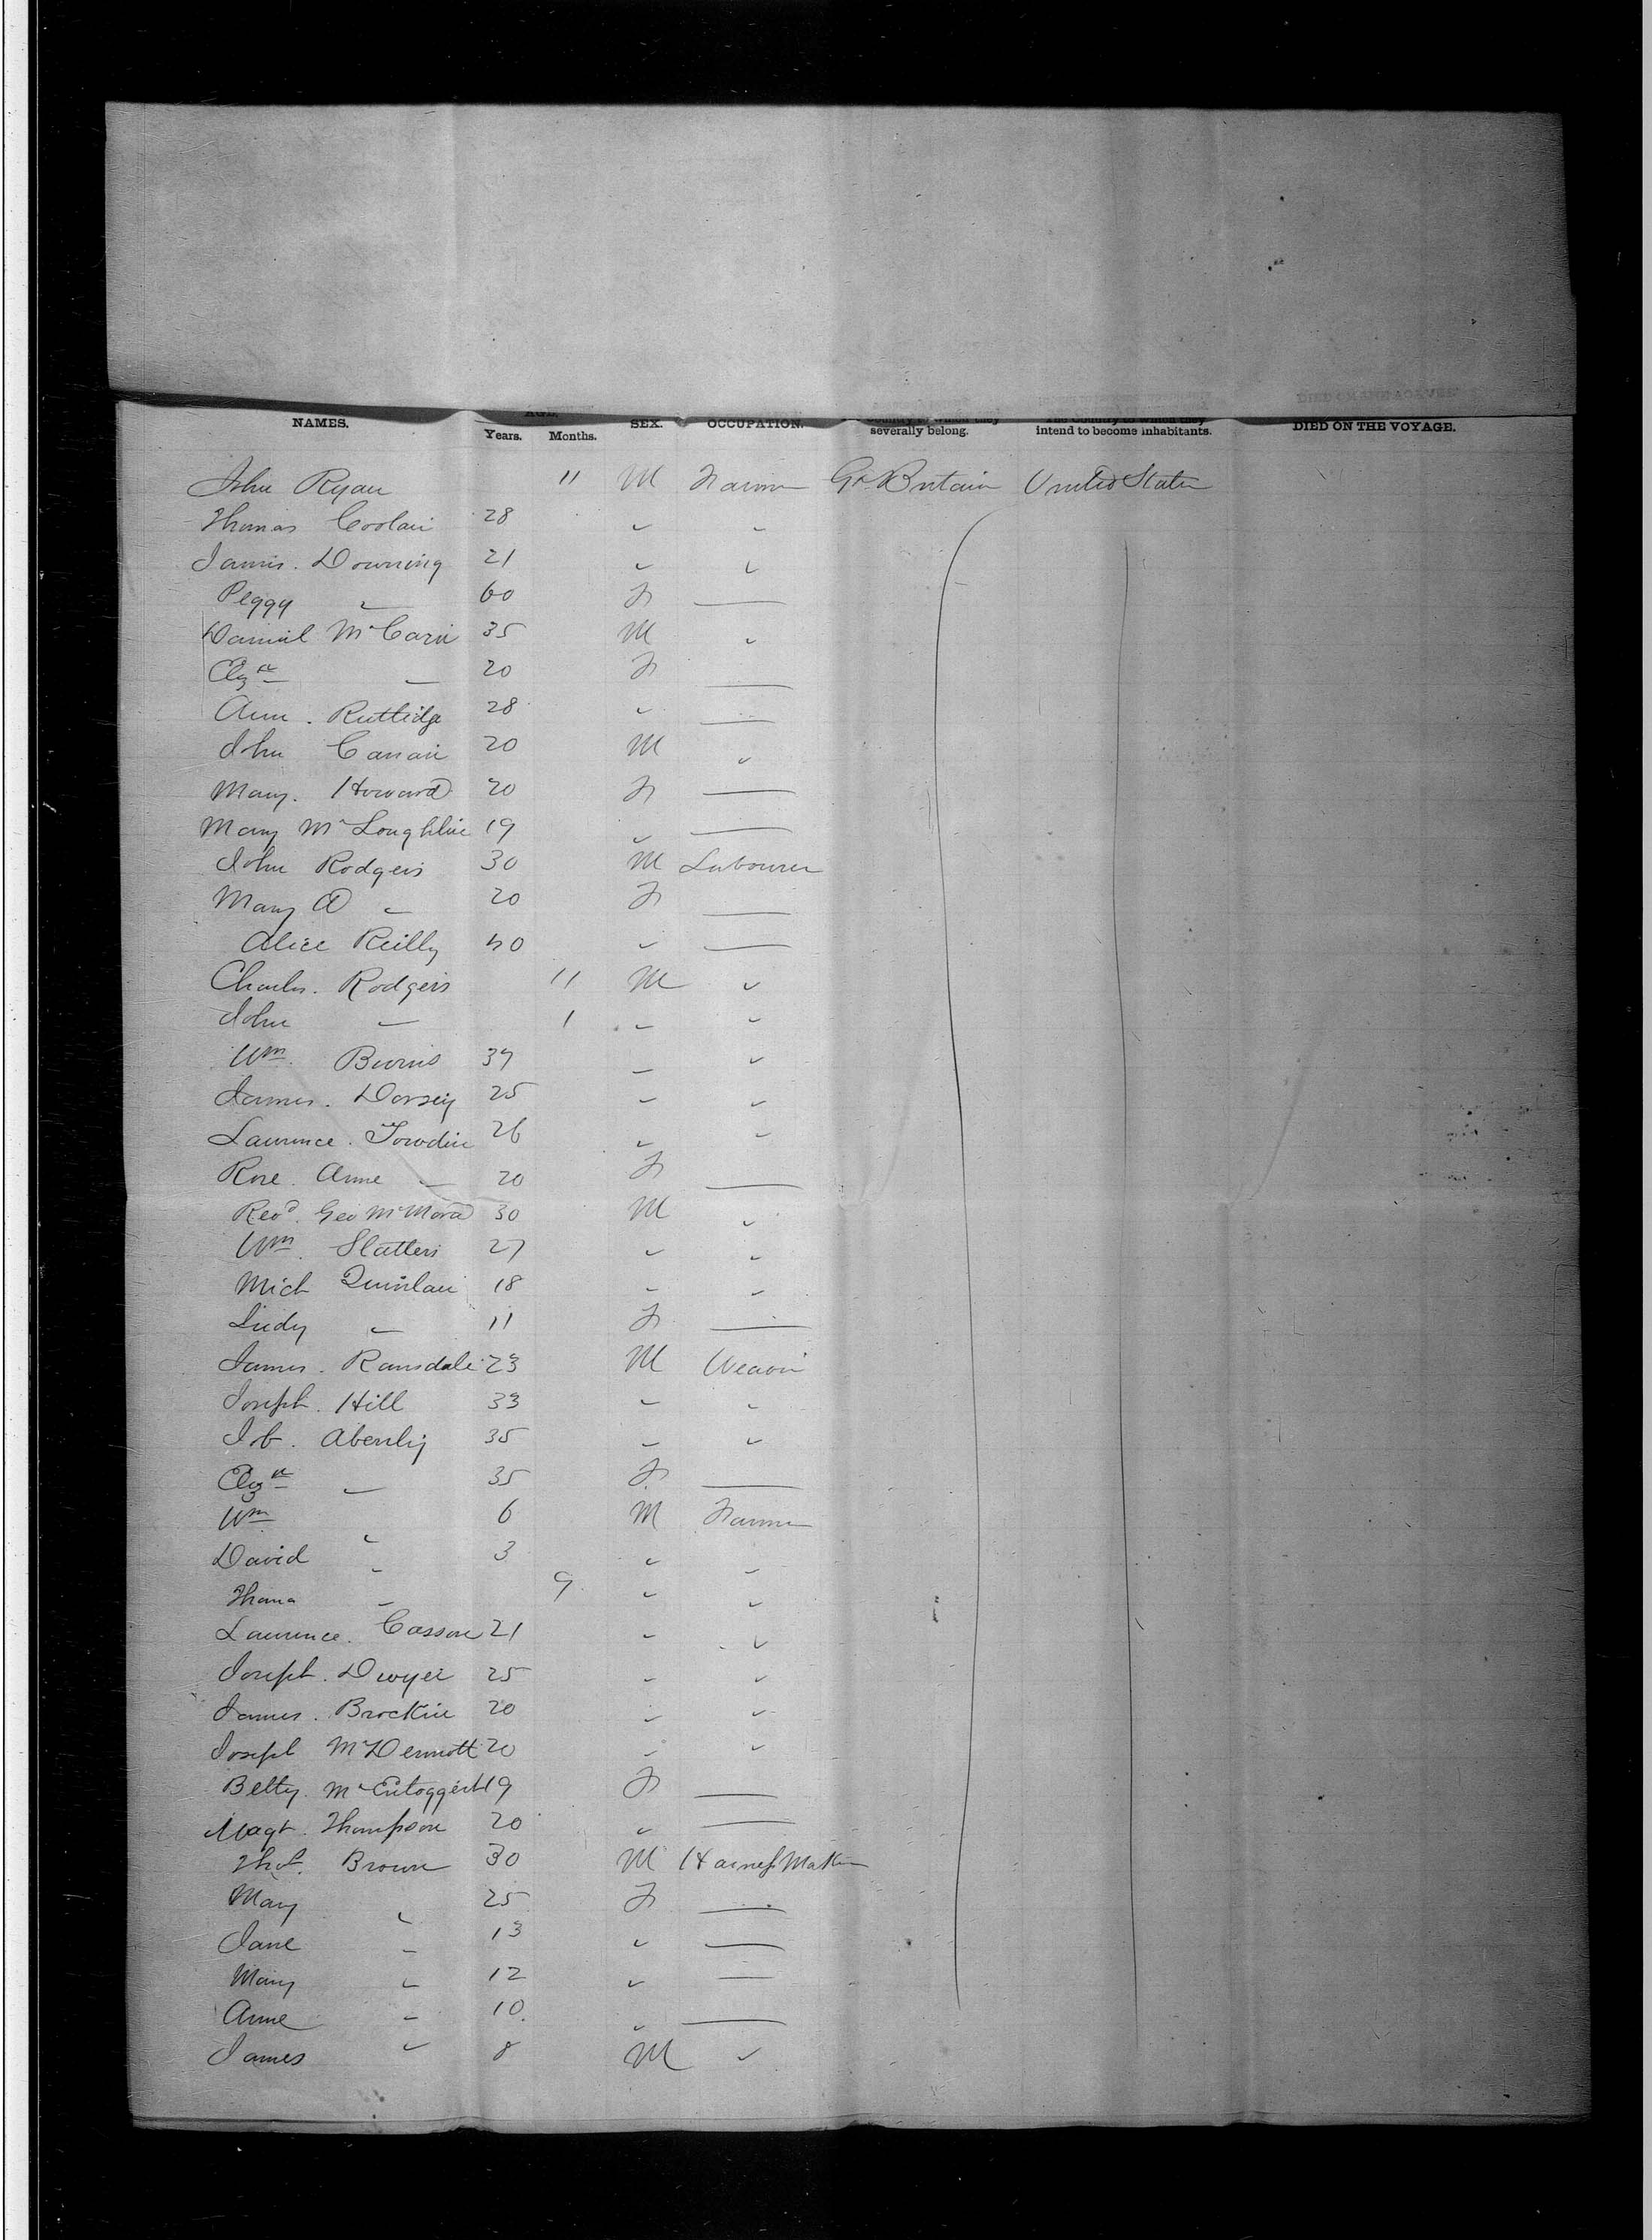 NAMES. AGE, Years. Months. SEX. OCCUPATION. Country to which they severally belong. The Country to which they intend to become inhabitants. DIED ON THE VOYAGE.
John Ryan 11 M Farmer Gt Britain United States
Thomas 28 " "
James. Downing 21 " "
Peggy " 60 F —
Daniel 35 M "
Elzth " 20 F —
Ann. Rutlidge 28 " —
John 20 M "
Mary. Howard 20 F —
Mary McLoughlin 19 " —
John Rodgers 30 M Labourer
Mary A " 20 F —
Alice Reilly 40 " —
Charles. Rodgers 11 M "
John " 1 " "
Wm. Burns 37 " "
James. Dorsey 25 " "
Laurence. 26 " "
Rose. Anne " 20 F —
Revd. Geo 30 M "
Wm. Slattery 27 " "
Mich Quinlan 18 " "
Judy " 11 F —
James. Ramsdale 23 M Weaver
Joseph. Hill 33 " "
35 " "
Elzth " 35 F —
Wm " 6 M Farmer
David " 3 " "
" 9 " "
Laurence. Casson 21 " "
Joseph. Dwyer 25 " "
James. 20 " "
Joseph McDermott 20 " "
Betty. 19 F —
Magt. Thompson 20 " —
Thos. Brown 30 M Harness Maker
Mary " 25 F —
Jane " 13 " —
Mary " 12 " —
Anne " 10. " —
James " 8 M "